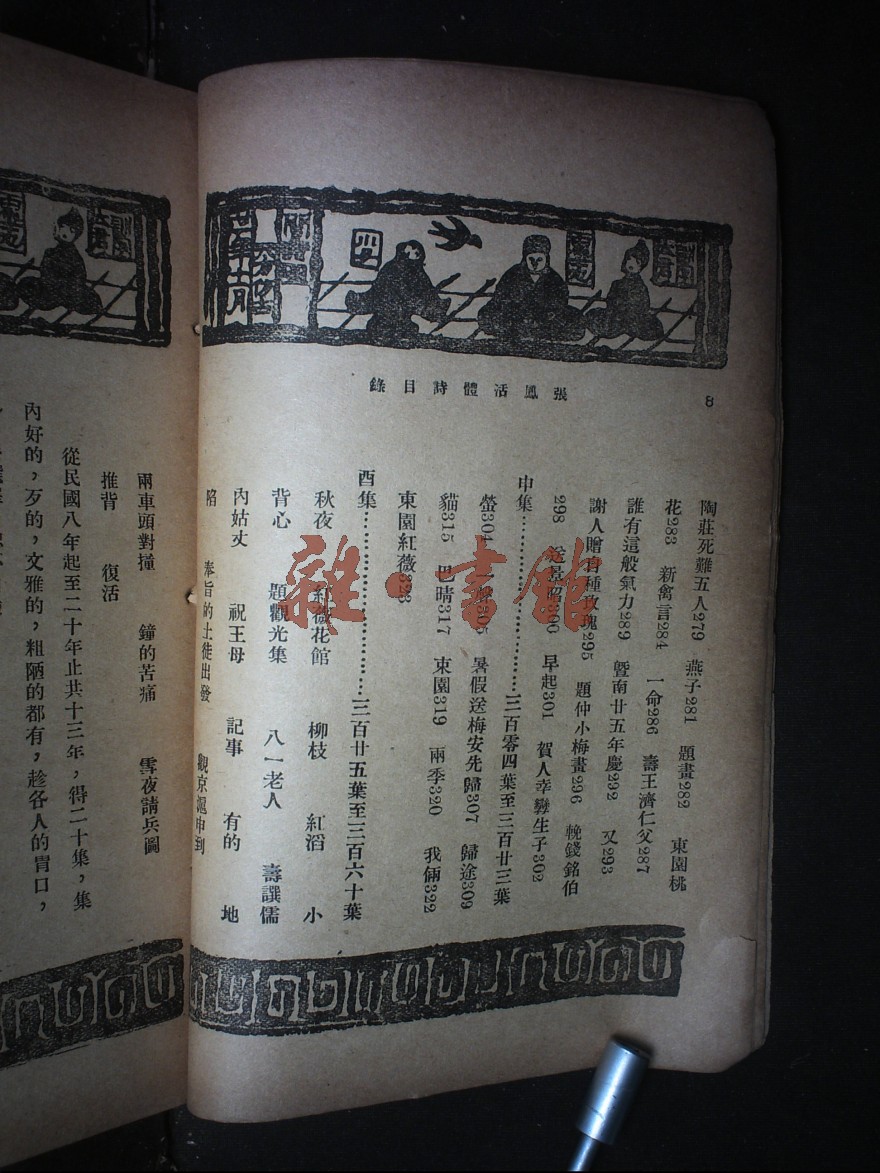 8
張鳳活體詩目錄
陶莊死難五人279 燕子281 題畫282 東園桃
花283 新禽言284 一命286 壽王濟仁父287
誰有這般氣力289 暨南廿五年慶292 又293
謝人贈百種玫瑰295 題仲小梅畫296 輓錢銘伯
298 送景昭300 早起301 賀人幸孿生子302
申集…………三百零四葉至三百廿三葉
螢304 305 暑假送梅安先歸307 歸途309
貓315 巴晴317 東園319 兩季320 我倆322
東園紅薇323
酉集…………三百廿五葉至三百六十葉
秋夜 紅薇花館 柳枝 紅滔 小
背心 題觀光集 八一老人 壽譔儒
內姑丈 祝王母 記事 有的 地
陷 奉旨的土徒出發 觀京滬車到
兩車頭對撞 鐘的苦痛 雪夜請兵圖
推背 復活
從民國八年起至二十年止共十三年，得二十集，集
內好的，歹的，文雅的，粗陋的都有，趁各人的胃口，
雜·書館